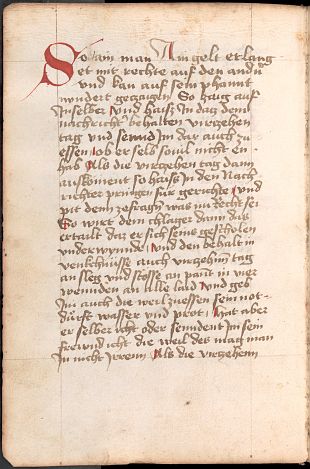 So ain man Ain gelt erlang
et mit rechte auf den andn
und kan auf sein phannt
nyndert gezaigen So haiz auf
In selber und haiß In dem
nachricht behalten virzehen
tag und sennd In dar auch zu
essen ob er selb souil nicht en
hab Als die virzehen tag dann
auskoment so haiß In den Nach
richter pringen für gerichte und
pit dem zefragn was nu Recht sei
So wirt dem chlager dann das
ertailt daz er sich seins geschollen
underwynnde und den behalt in
venkchnüsse auch virzehen tag
an sleg und stosse an pant in ver
an alle laid und geb
Im auch die weil zuessen sein not
durft wasser und prot hat aber
er selber icht oder senndent Im sein
frewnd icht die weil des mag man
In nicht Irren Als die virzehen